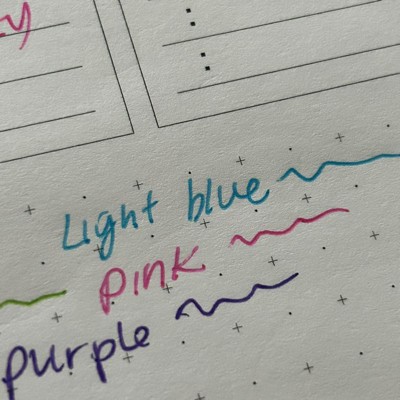 Light blue
pink
purple